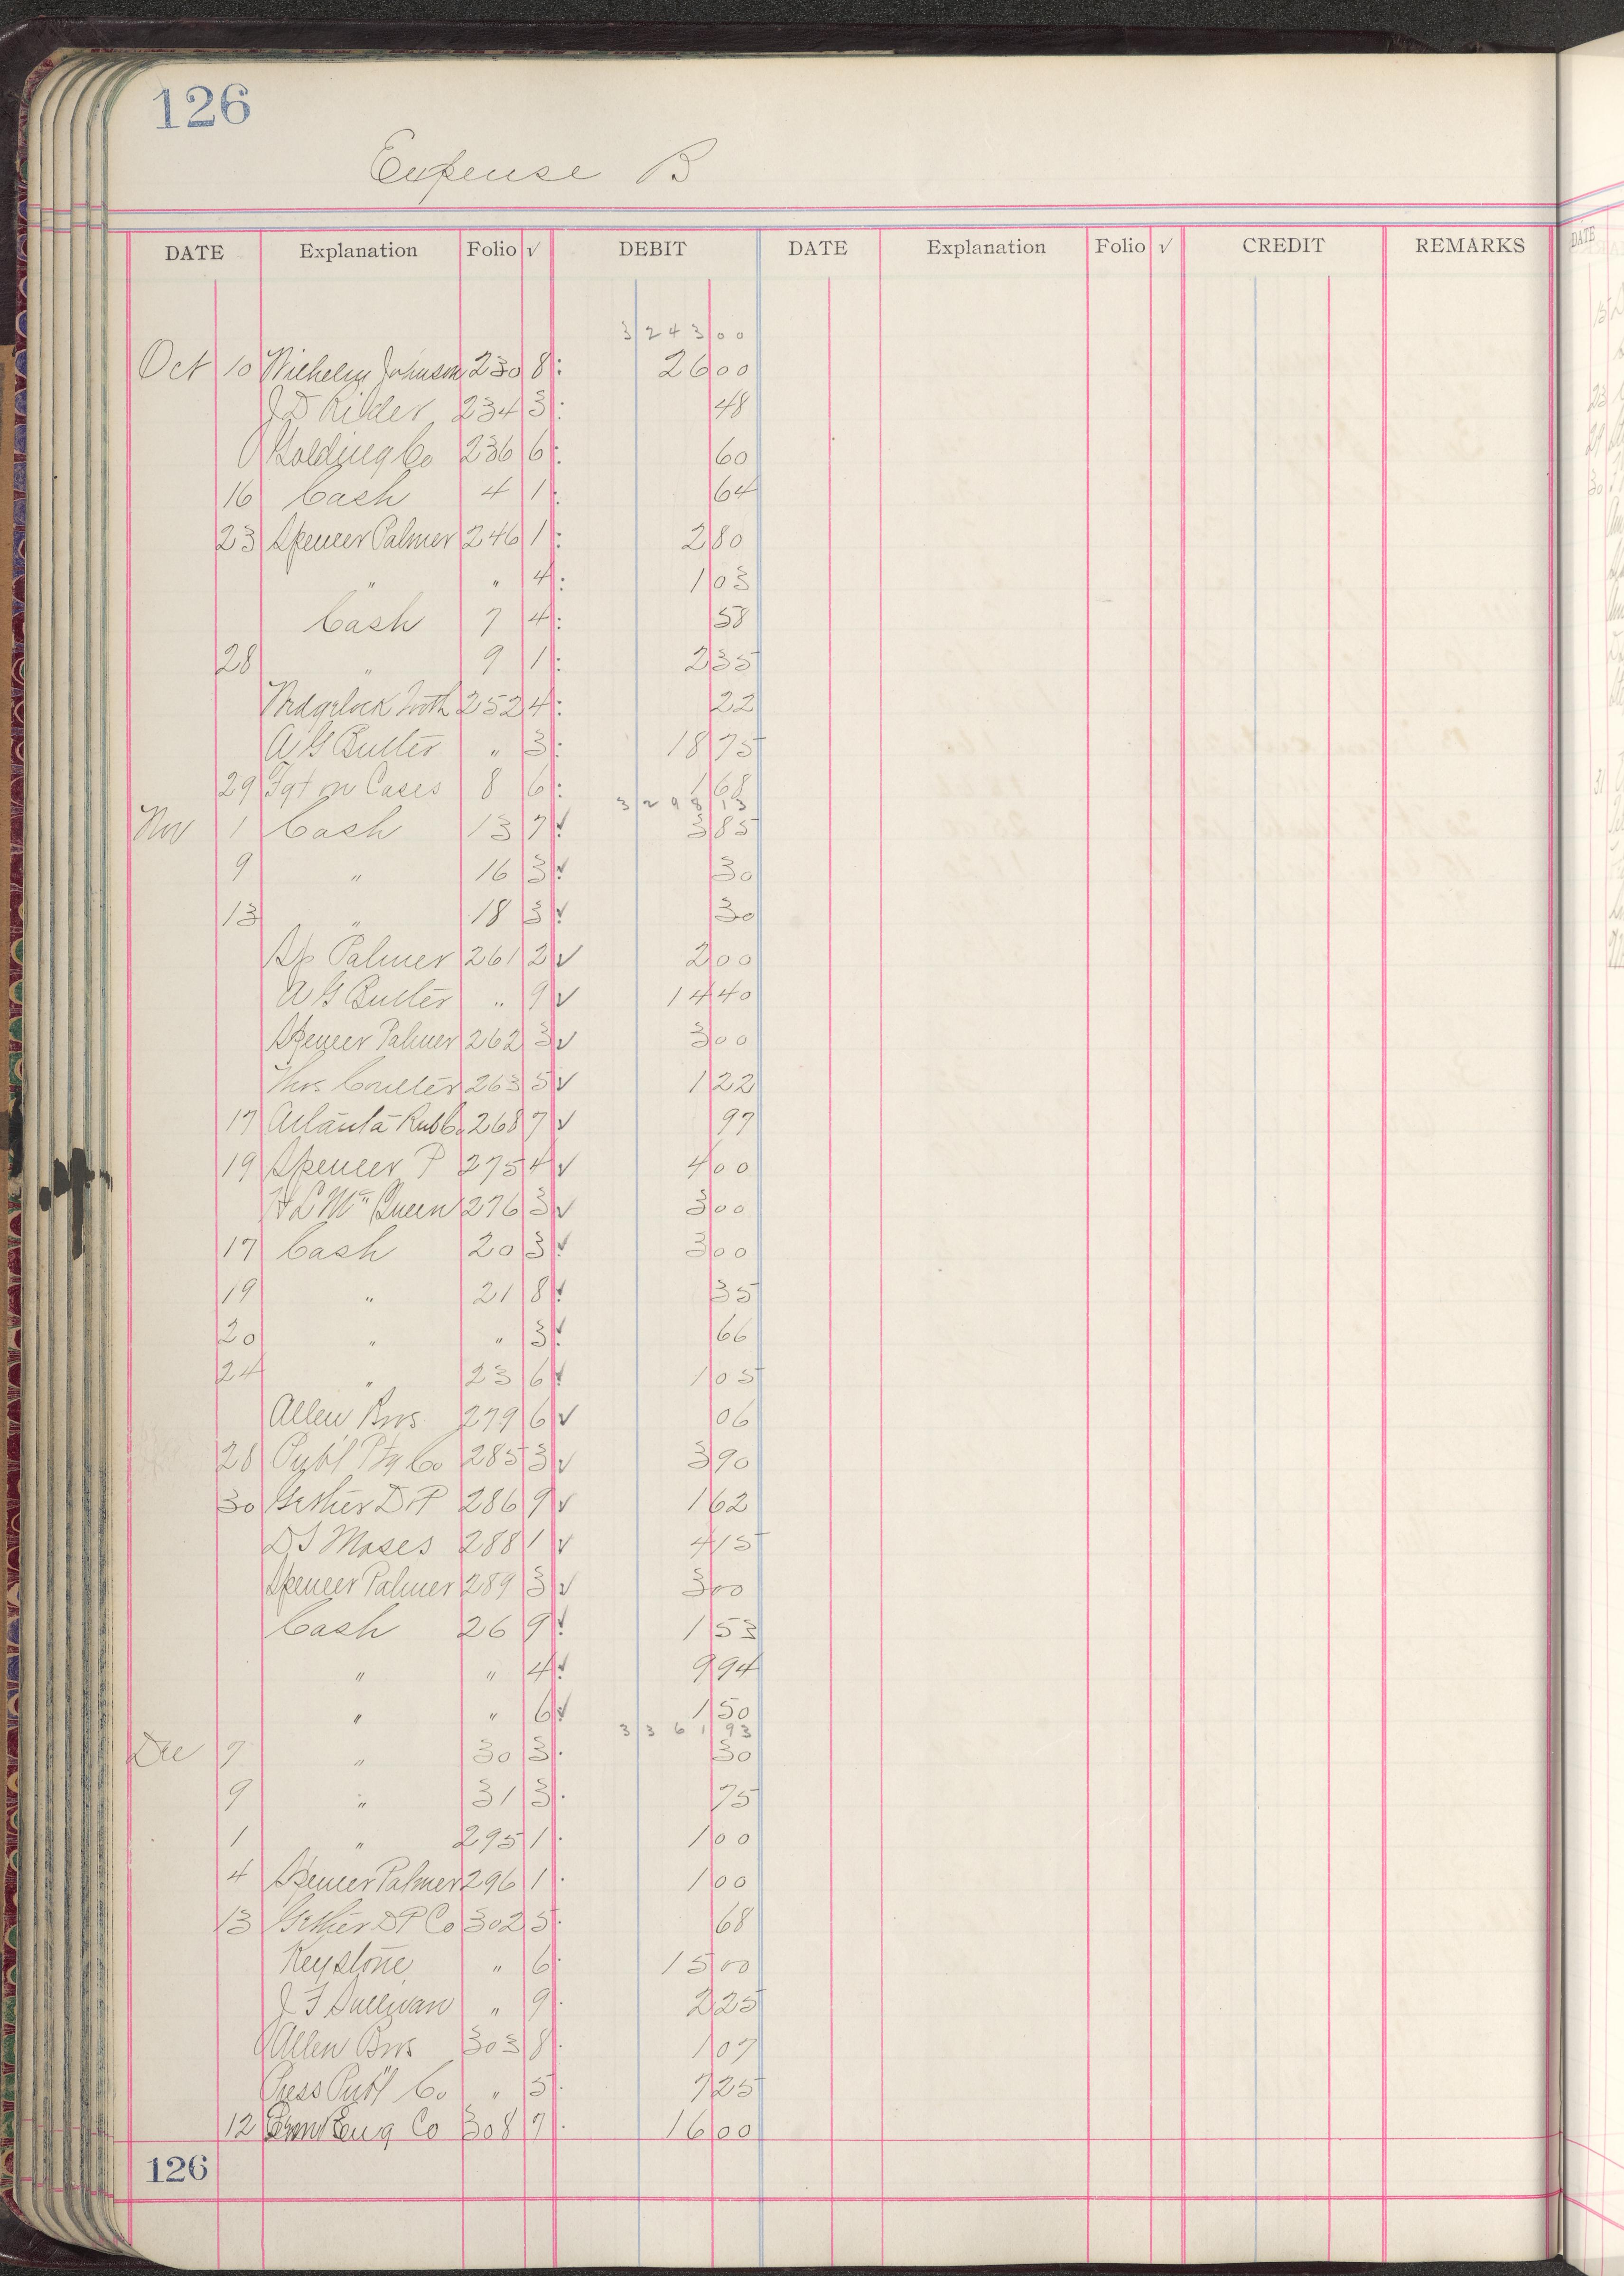 126
Expense B
DATE Explanation Folio √ DEBIT DATE Explanation Folio √ CREDIT REMARKS
3 243 00
Oct 10 Wilhelm Johnson 230 8 : 26 00
J D Kilder 234 3 : 48
Golding Co 236 6 : 60
16 Cash 4 1 : 64
23 Spencer Palmer 246 1 : 2 80
" " 4 : 1 03
Cash 7 4 : 58
28 " 9 1 : 2 35
252 4 : 22
A G Butler " 3 : 18 75
29 Fgt on Cases 8 6 : 1 68
3 298 13
Nov 1 Cash 13 7 √ 3 85
9 " 16 3 √ 30
13 " 18 3 √ 30
Sp Palmer 261 2 √ 2 00
A G Butler " 9 √ 14 40
Spencer Palmer 262 3 √ 3 00
Thos Coulter 263 5 √ 1 22
17 Atlanta Rub Co 268 7 √ 97
19 Spencer P 275 4 √ 4 00
H L Mc Queen 276 3 √ 3 00
17 Cash 20 3 √ 3 00
19 " 21 8 √ 35
20 " " 3 √ 66
24 " 23 6 √ 1 05
Allen Bros 279 6 √ 06
28 Pub'l Ptg Co 285 3 √ 3 90
30 Gether D P 286 9 √ 1 62
D J Moses 288 1 √ 4 15
Spencer Palmer 289 3 √ 3 00
Cash 26 9 √ 1 53
" " 4 √ 9 94
" " 6 √ 1 50
3 361 93
Dec 7 " 30 3 . 30
9 " 31 3 . 75
1 " 295 1 . 1 00
4 Spencer Palmer 296 1 . 1 00
13 Gether D P Co 302 5 . 68
Keystone " 6 . 15 00
J F Sullivan " 9 . 2 25
Allen Bros 303 8 . 1 07
Press Pub'l Co " 5 . 7 25
12 Eng Co 308 7 . 16 00
126